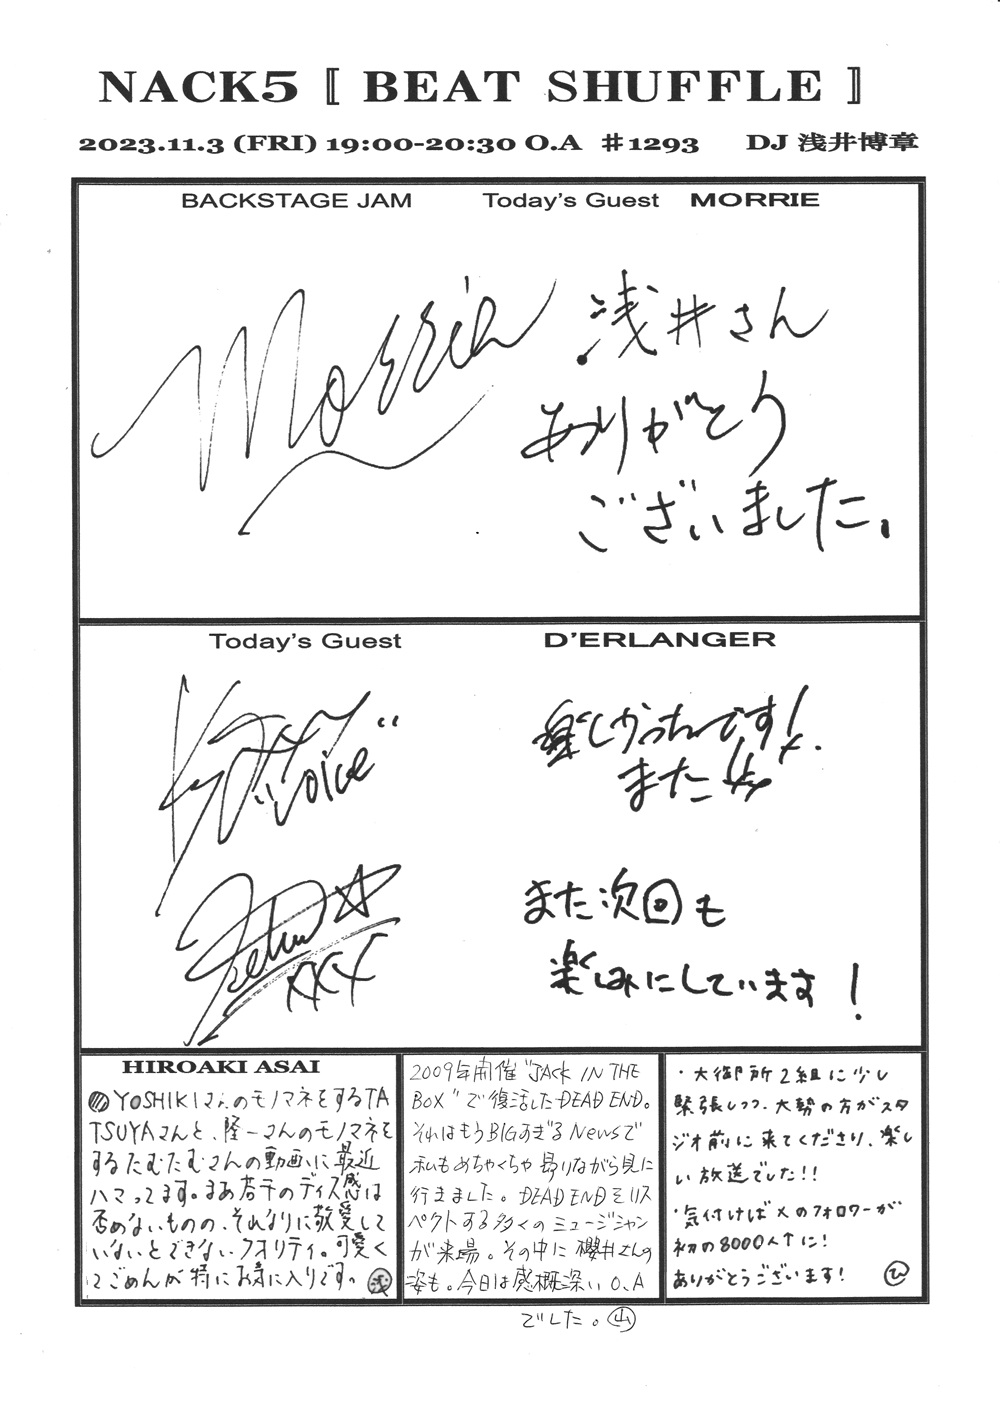 NACK5 〚 BEAT SHUFFLE 〛
2023.11.3 (FRI) 19:00-20:30 O.A ＃1293 DJ 浅井博章
BACKSTAGE JAM Today's Guest MORRIE
Morrie
浅井さん
ありがとう
ございました。
Today's Guest D'ERLANGER
"Voice"
楽しかったです!
また
Tetsu
また次回も
楽しみにしています!
HIROAKI ASAI
YOSHIKIさんのモノマネをするTA
TSUYAさんと、隆一さんのモノマネを
するたむたむさんの動画に最近
ハマってます。まあ若干のディス感は
否めないものの、それなりに敬愛して
いないとできないクオリティ。可愛く
てごめんが特にお気に入りです。浅
2009年開催"JACK IN THE
BOX"で復活したDEAD END。
それはもうBIGすぎるNewsで
私もめちゃくちゃ昂りながら見に
行きました。DEAD ENDをリス
ペクトする多くのミュージシャン
が来場。その中に櫻井さんの
姿も。今日は感慨深いO.A
でした。山
・大御所2組に少し
緊張しつつ、大勢の方がスタ
ジオ前に来てくださり、楽し
い放送でした!!
・気付けばXのフォロワーが
初の8000人↑に!
ありがとうございます! ひ